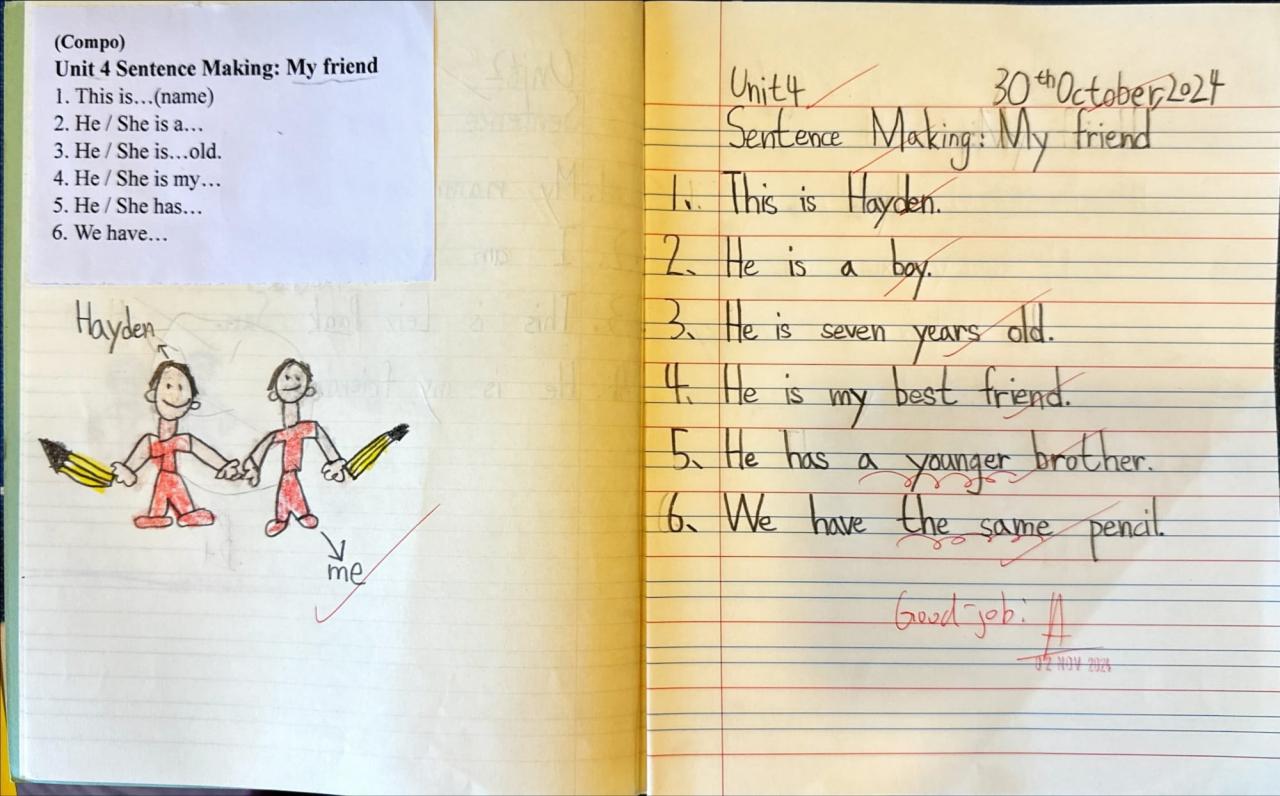 (Compo)
Unit 4 Sentence Making: My friend
1. This is…(name)
2. He / She is a…
3. He / She is…old.
4. He / She is my…
5. He / She has…
6. We have…
Hayden
me
Unit 4 30th October, 2024
Sentence Making: My friend
1. This is Hayden.
2. He is a boy.
3. He is seven years old.
4. He is my best friend.
5. He has a younger brother.
6. We have the same pencil.
Good job! A
02 NOV 2024